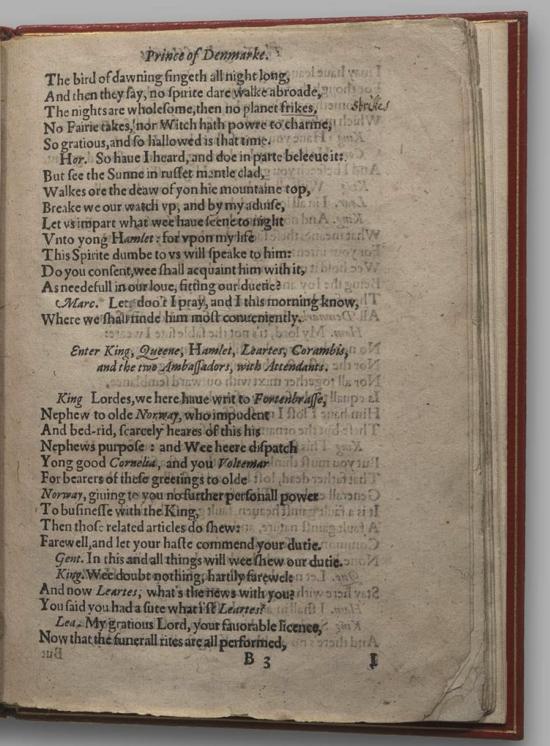 Prince of Denmarke.
The bird of dawning ſingeth all night long,
And then they ſay, no ſpirite dare walke abroade,
The nights are wholeſome, then no planet frikes,
No Fairie takes, nor Witch hath powre to charme,
So gratious, and ſo hallowed is that time.
Hor. So haue I heard, and doe in parte beleeue it:
But ſee the Sunne in ruſſet mantle clad,
Walkes ore the deaw of yon hie mountaine top,
Breake we our watch vp, and by my aduiſe,
Let vs impart what wee haue ſeene to night
Vnto yong Hamlet: for vpon my life
This Spirite dumbe to vs will ſpeake to him:
Do you conſent, wee ſhall acquaint him with it,
As needefull in our loue, fitting our duetie?
Marc. Lets doo't I pray, and I this morning know,
Where we ſhall finde him moſt conueniently.
Enter King, Queene, Hamlet, Leartes, Corambis,
and the two Ambaſſadors, with Attendants.
King Lordes, we here haue writ to Fortenbraſſe,
Nephew to olde Norway, who impudent
And bed-rid, ſcarcely heares of this his
Nephews purpoſe : and Wee heere diſpatch
Yong good Cornelia, and you Voltemar
For bearers of theſe greetings to olde
Norway, giuing to you no further perſonall power
To buſineſſe with the King,
Then thoſe related articles do ſhew:
Farewell, and let your haſte commend your dutie.
Gent. In this and all things will wee ſhew our dutie.
King. Wee doubt nothing, hartily farewel:
And now Leartes, what's the news with you?
You ſaid you had a ſute what i'ſt Leartes?
Lea. My gratious Lord, your fauorable licence,
Now that the funerall rites are all performed,
B 3
I